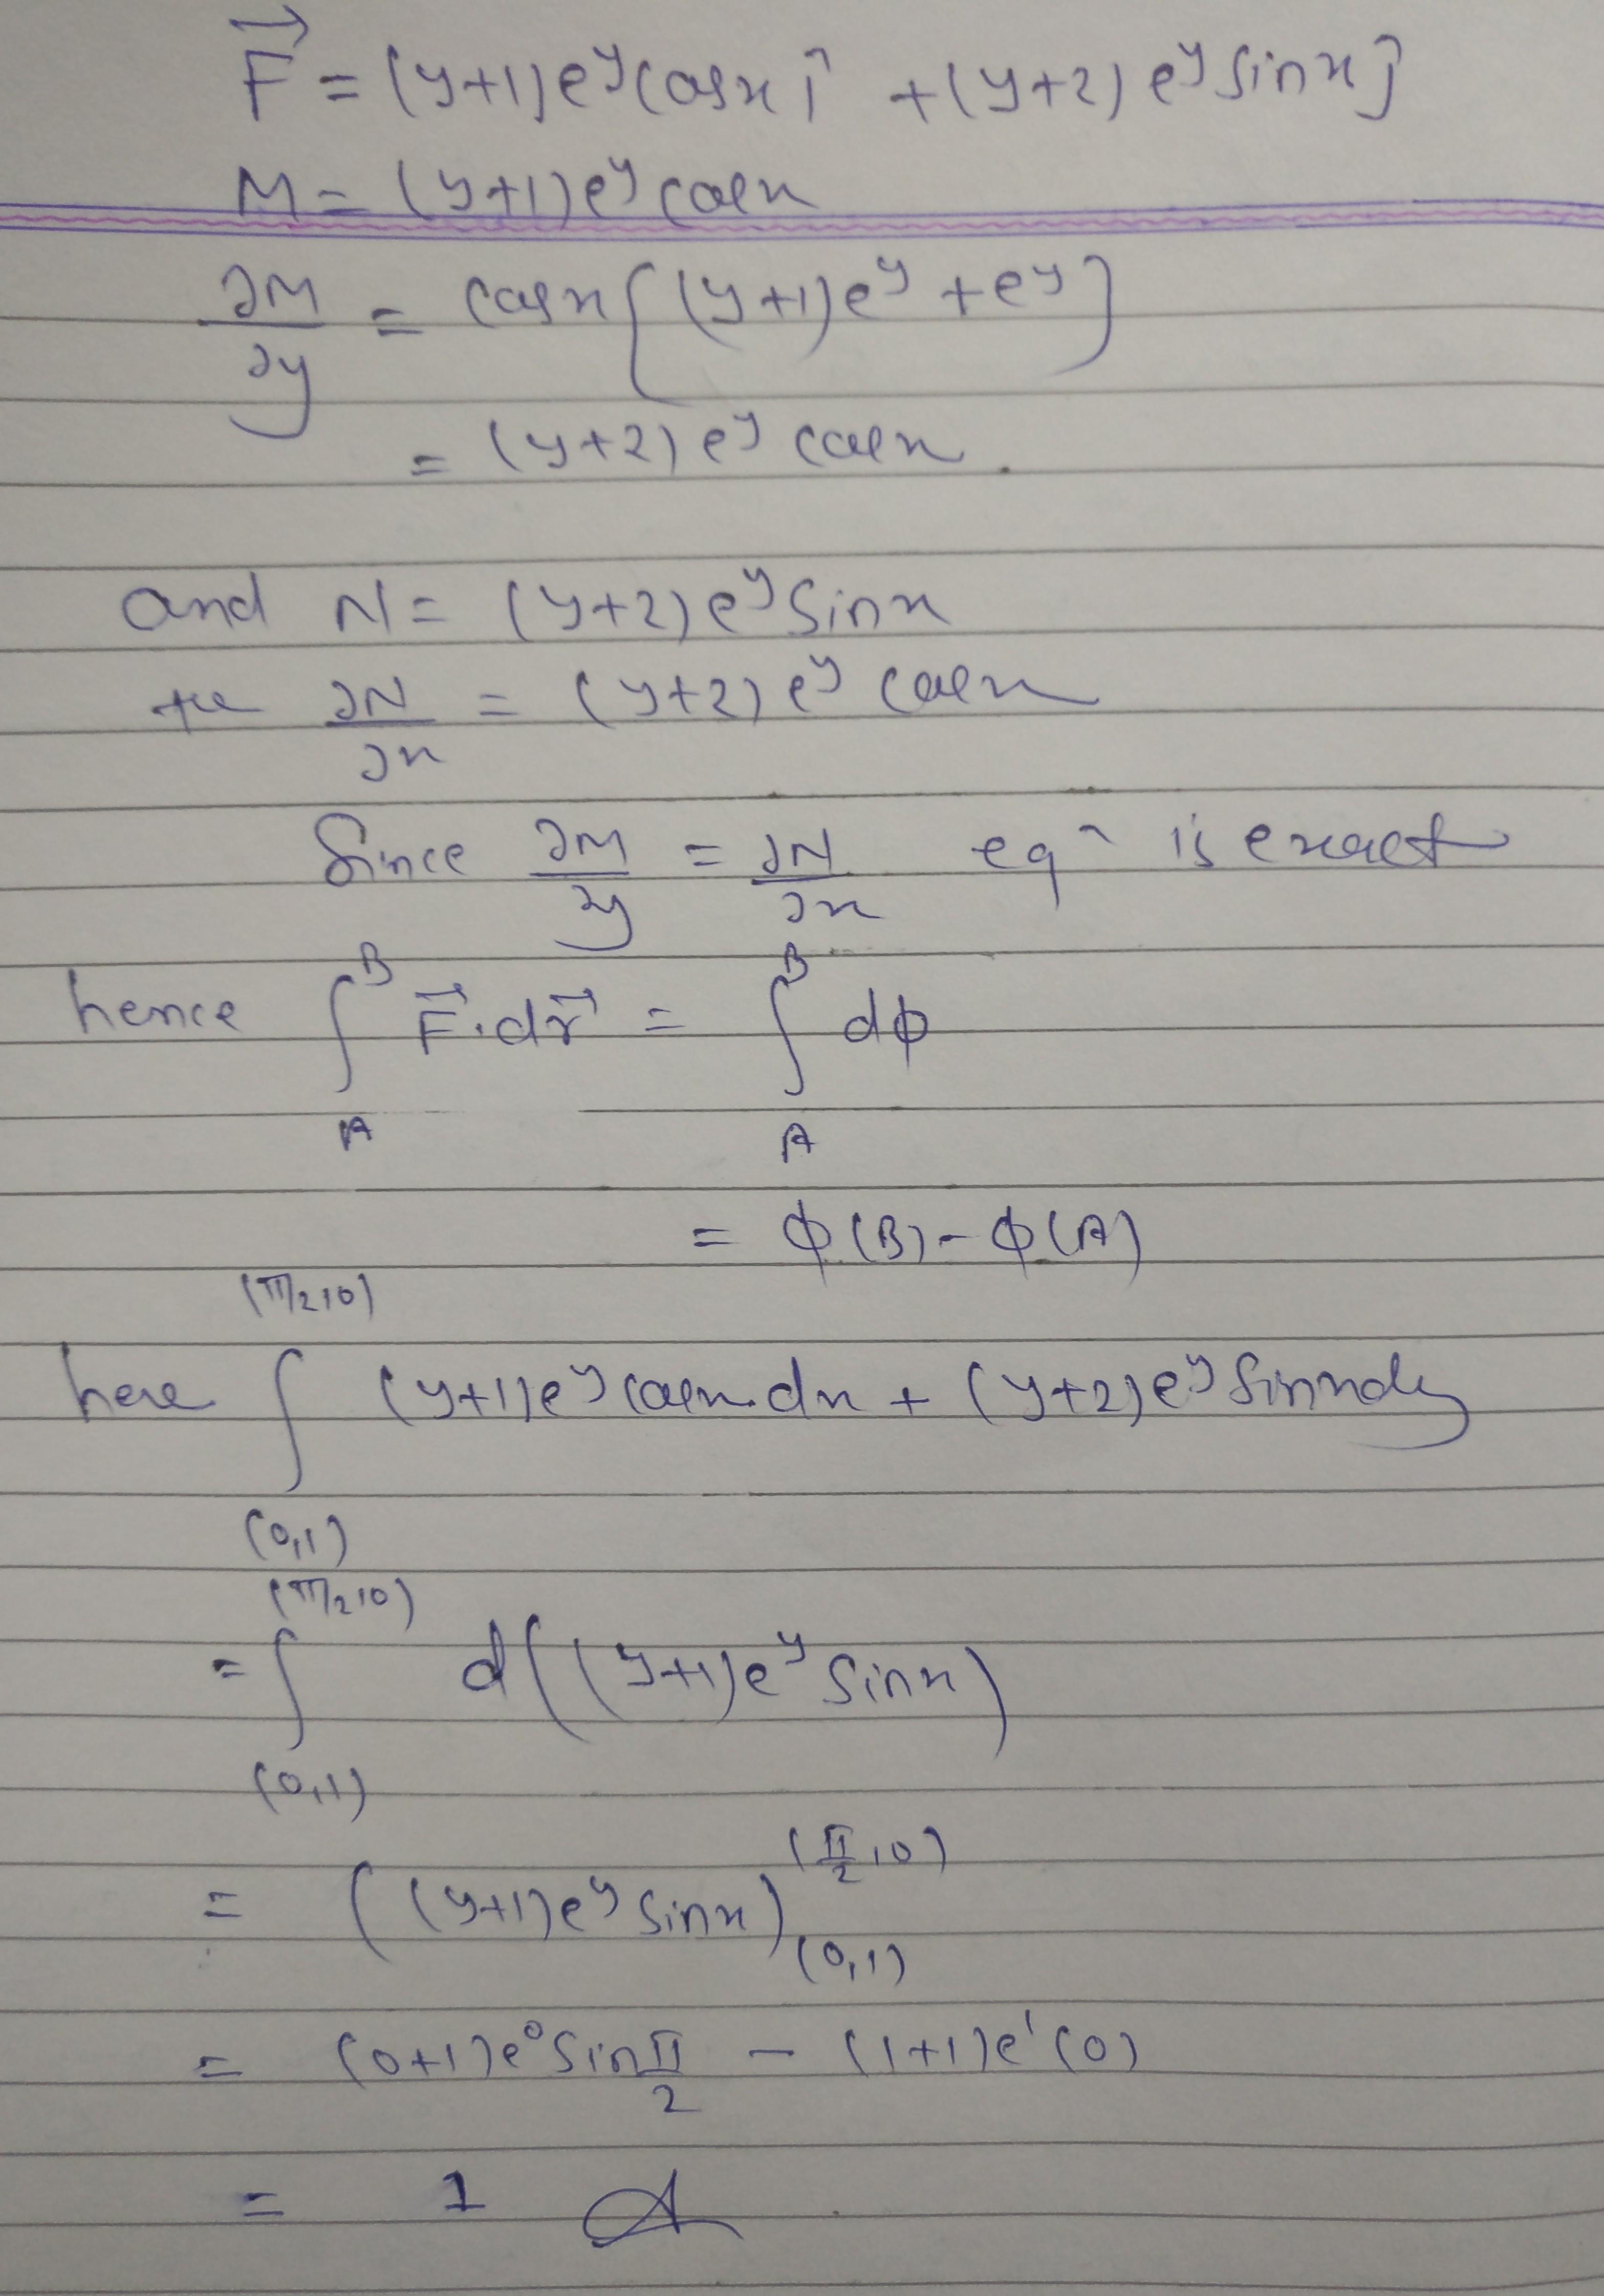 F⃗ = (y+1)e^y cosx î + (y+2) e^y sinx ĵ
M = (y+1)e^y cosx
∂M/∂y = cosx [(y+1)e^y + e^y]
= (y+2) e^y cosx.
and N = (y+2) e^y sinx
∂N/∂x = (y+2) e^y cosx
Since ∂M/∂y = ∂N/∂x eqⁿ is exact
hence ∫_A^B F⃗.dr⃗ = ∫_A^B dφ
= φ(B) - φ(A)
here ∫_(0,1)^(π/2,0) (y+1)e^y cosx.dx + (y+2)e^y sinxdy
= ∫_(0,1)^(π/2,0) d((y+1)e^y sinx)
= ((y+1)e^y sinx)_(0,1)^(π/2,0)
= (0+1)e^0 sin π/2 - (1+1)e^1 (0)
= 1